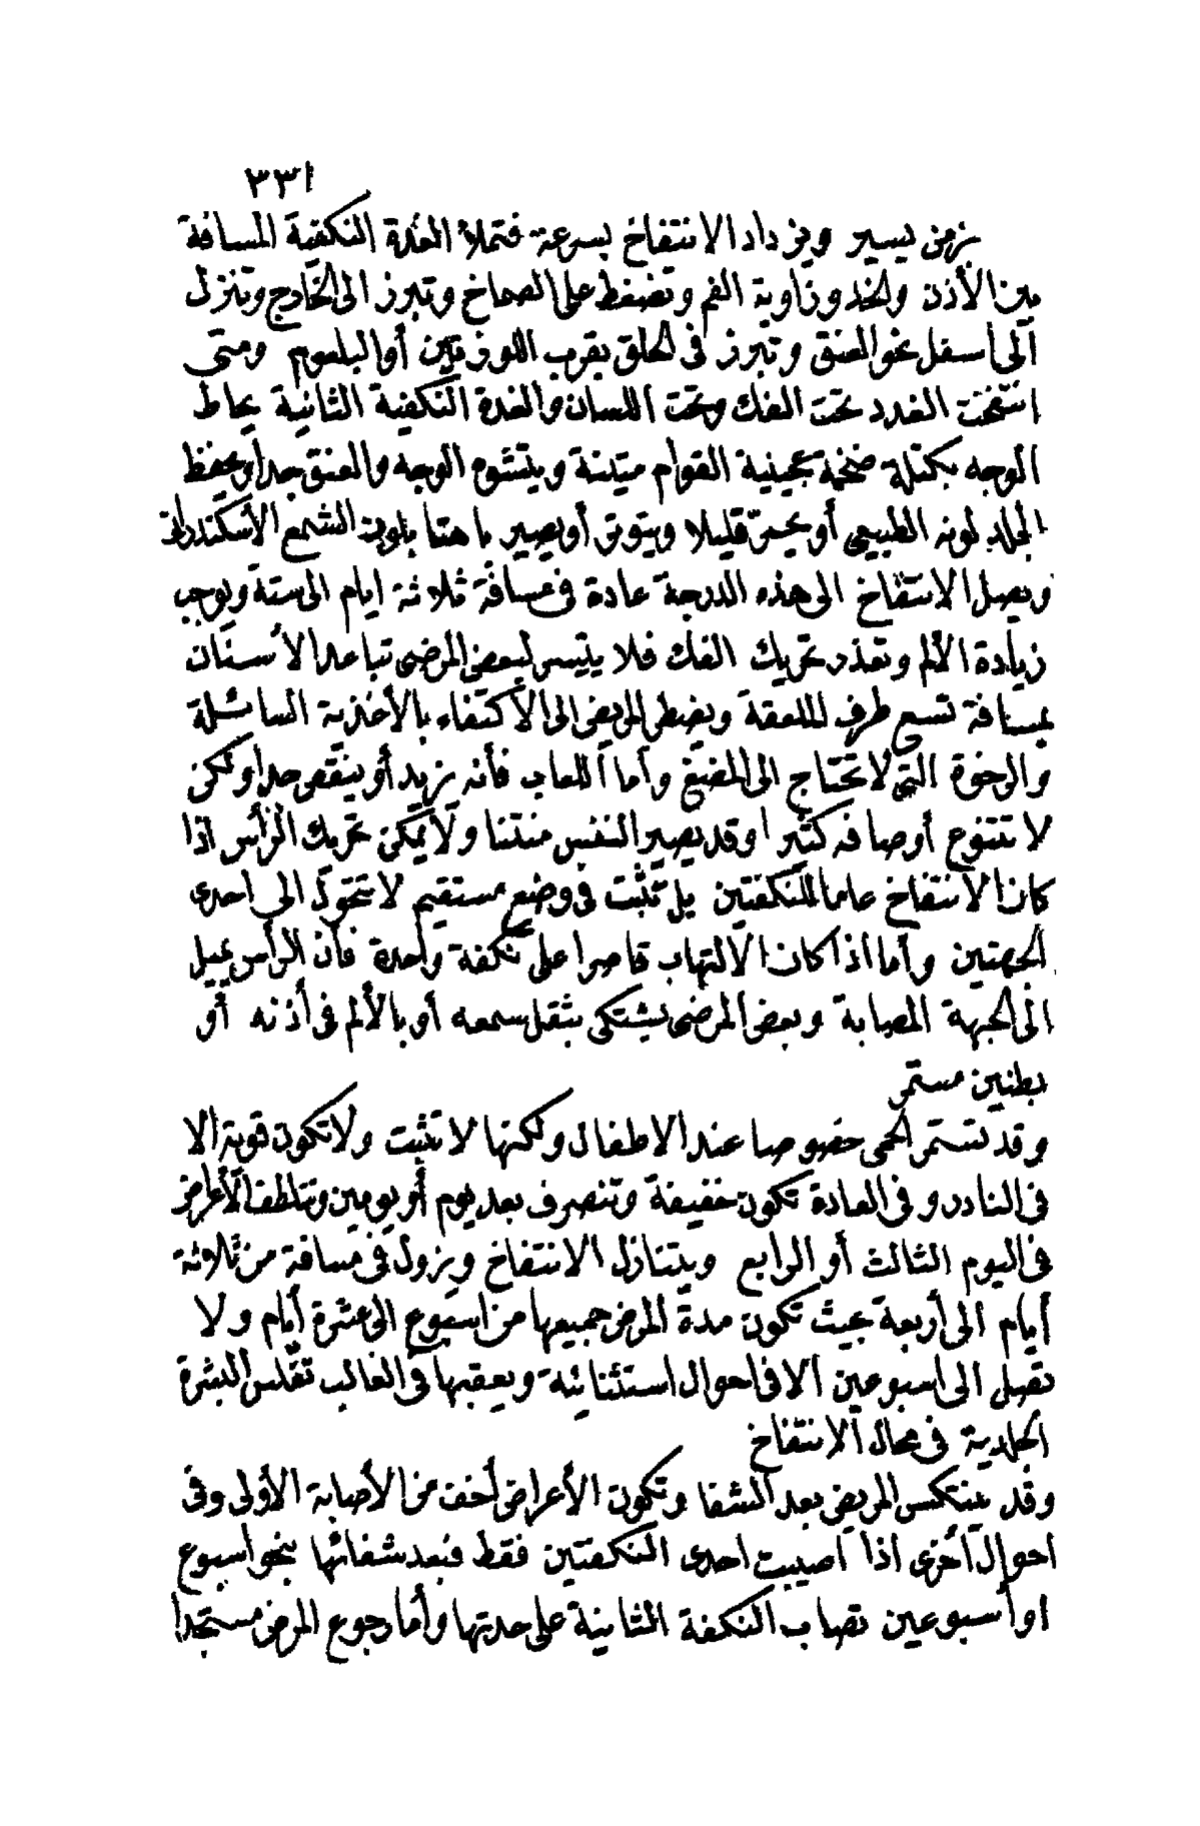 ٣٣١
بزمن يسير ويزداد الانتفاخ بسرعة فتملأ الغدة النكفية المسافة
بين الأذن والخد وزاوية الفم وتضغط على الصماخ وتبرز الى الخارج وتنزل
الى أسفل نحو العنق وتبرز فى الحلق بقرب اللوزتين أو البلعوم ومتى
انتفخت الغدد تحت الفك وتحت اللسان والغدة النكفية الثانية يحاط
الوجه بكتلة ضخمة عجينية القوام متينة ويتشوه الوجه والعنق جدا ويحفظ
الجلد لونه الطبيعى أو يحمرّ قليلا ويتوتر أو يصير باهتا بلون الشمع الأسكندرانى
ويصل الانتفاخ الى هذه الدرجة عادة فى مسافة ثلاثة ايام الى ستة ويوجب
زيادة الألم وتعذر تحريك الفك فلا يتيسر لبعض المرضى تباعد الأسنان
بمسافة تسع طرف الملعقة ويضطر المريض الى الأكتفاء بالأغذية السائلة
والرخوة التى لا تحتاج الى المضغ وأما اللعاب فأنه يزيد أو ينقص جدا ولكن
لا تتنوع أوصافه كثيرا وقد يصير النفس منتنا ولا يمكن تحريك الرأس اذا
كان الانتفاخ عاما للنكفتين بل تثبت فى وضع مستقيم لا تتحول الى احدى
الجهتين وأما اذا كان الالتهاب قاصرا على نكفة واحدة فان الرأس يميل
الى الجهة المصابة وبعض المرضى يشتكى بثقل سمعه أو بالألم فى أذنه أو
بطنين مستمر
وقد تستمر الحمى خصوصا عند الاطفال ولكنها لا تثبت ولا تكون قوية الا
فى النادر وفى العادة تكون خفيفة وتنصرف بعد يوم أو يومين وتتلطف الأعراض
فى اليوم الثالث أو الرابع ويتنازل الانتفاخ ويزول فى مسافة من ثلاثة
أيام الى أربعة بحيث تكون مدة المرض جميعها من اسبوع الى عشرة أيام ولا
تصل الى اسبوعين الا فى احوال استثنائية ويعقبها فى الغالب تفلس البشرة
الجلدية فى محال الانتفاخ
وقد ينتكس المريض بعد الشفا وتكون الأعراض أخف من الأصابة الأولى وفى
احوال أخرى اذا اصيبت احدى النكفتين فقط فبعد شفائها بنحو اسبوع
او أسبوعين تصاب النكفة الثانية على حدتها وأما رجوع المرض مستجدا